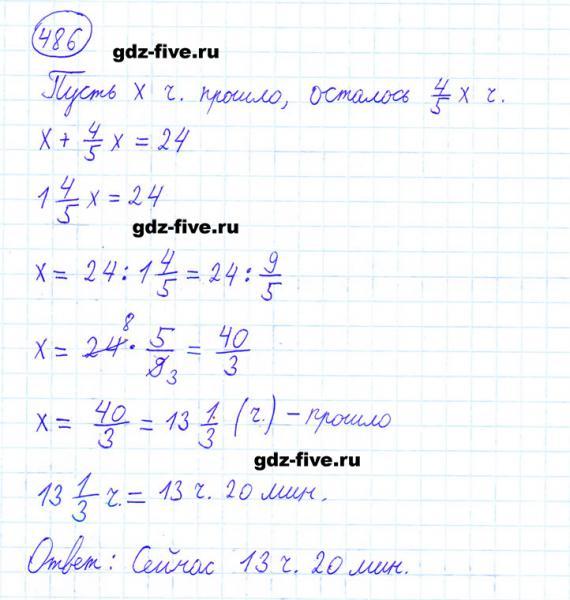 486
gdz-five.ru
Пусть x ч. прошло, осталось 4/5 x ч.
x + 4/5 x = 24
1 4/5 x = 24
gdz-five.ru
x = 24 : 1 4/5 = 24 : 9/5
x = 24 8 · 5/9 3 = 40/3
x = 40/3 = 13 1/3 (ч.) – прошло
gdz-five.ru
13 1/3 ч. = 13 ч. 20 мин.
Ответ: Сейчас 13 ч. 20 мин.